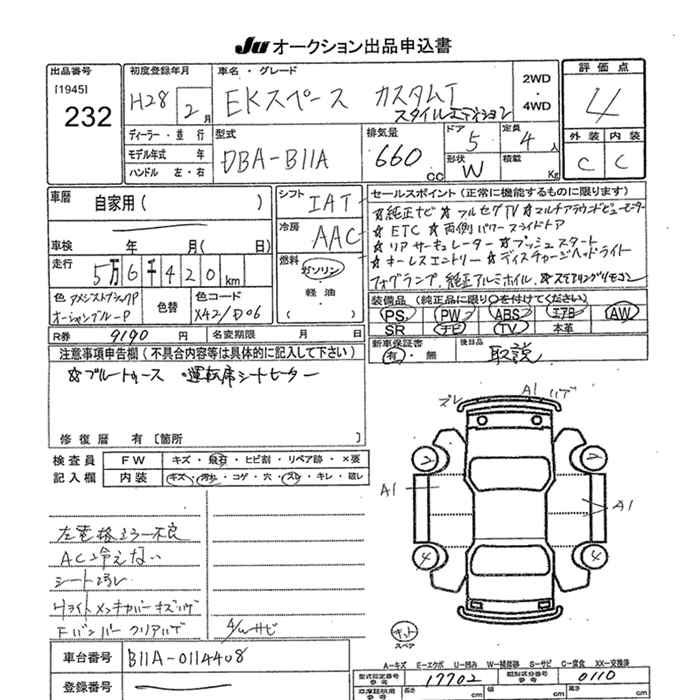 Ju オークション出品申込書
出品番号
[1945]
232
初度登録年月
H28 2月
車名・グレード
EKスペース カスタムT
スタイルエディション
2WD
・
4WD
評価点
4
外装 内装
C C
ディーラー・並行
モデル年式 年
ハンドル 左・右
型式
DBA-B11A
排気量
660 CC
ドア 5
定員 4 人
形状 W
積載 Kg
車歴
自家用( )
車検 年 月( 日)
走行
5万6千420km
シフト IAT
冷房 AAC
燃料
ガソリン
・
軽油
・
( )
セールスポイント(正常に機能するものに限ります)
☆純正ナビ ☆フルセグTV ☆マルチアラウンドビューモニター
☆ETC ☆両側パワースライドドア
☆リアサーキュレーター ☆プッシュスタート
☆キーレスエントリー ☆ディスチャージヘッドライト
フォグランプ、純正アルミホイル、☆ステアリングリモコン
色
オーシャンブルーP
色替
色コード
X42/D06
装備品(純正品に限り○を付けてください)
PS PW ABS エアB AW
SR ナビ TV 本革
R券 9190 円
名変期限 月 日
新車保証書
有・無
後日品
取説
注意事項申告欄(不具合内容等は具体的に記入して下さい)
☆ブルートゥース ・運転席シートヒーター
修復歴 有[箇所 ]
検査員
記入欄
FW キズ・飛石・ヒビ割・リペア跡・×要
内装 キズ・汚れ・コゲ・穴・スレ・キレ・破レ
ズレ A1 リブ
2 2
A1 A1
4 4
左電格ミラー不良
ACン冷えない
シート汚レ
Fバンパークリアハゲ
4/Wサビ
キット
スペア
A-キズ E-エクボ U-凹み W-補修跡 S-サビ C-腐食 XX-交換済
車台番号 B11A-0114408
型式指定番号
参考
17702
類別区分番号
参考
0110
登録番号
長さ cm 幅 cm 高さ cm